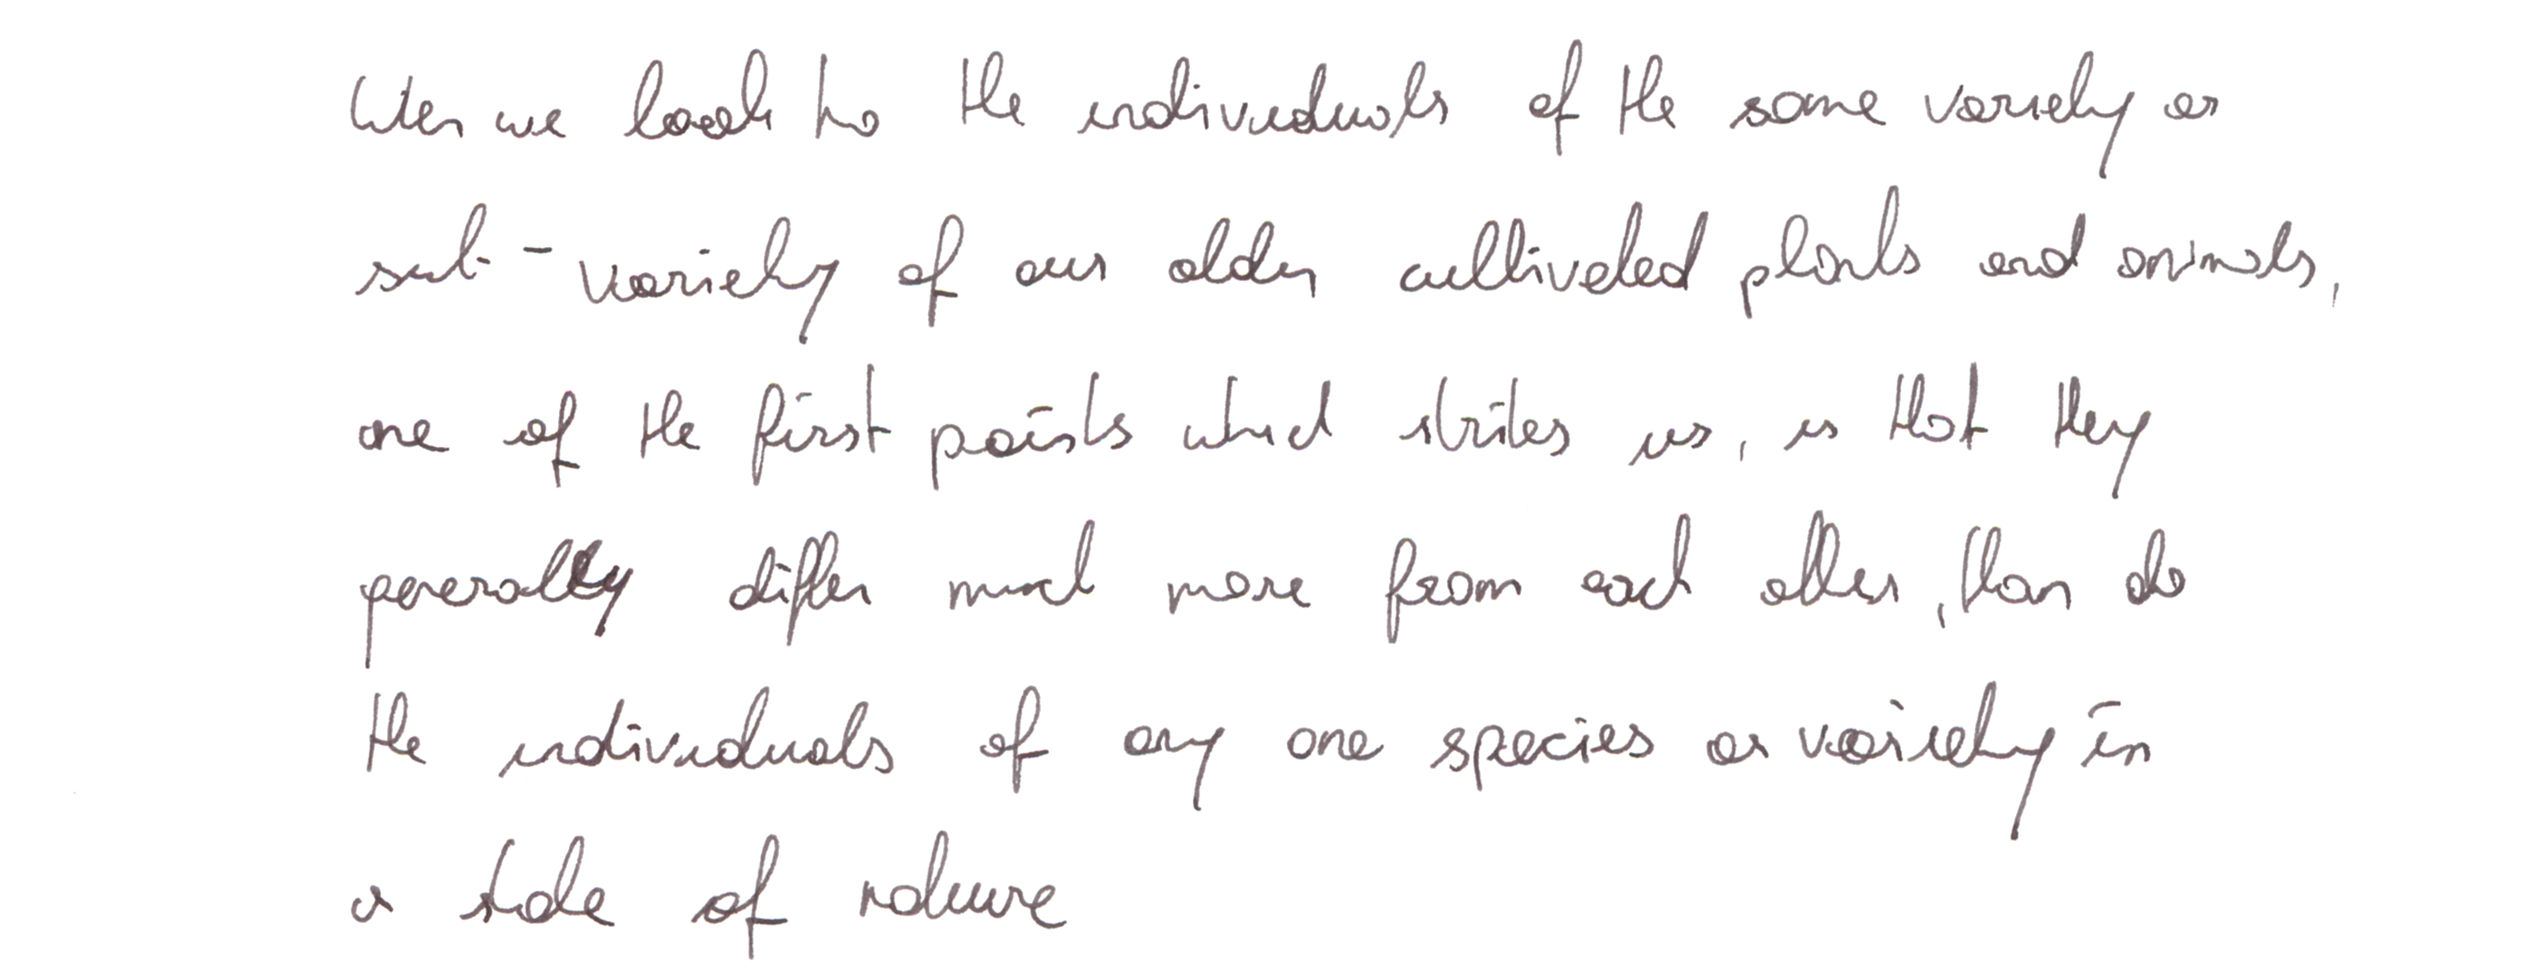 When we look to the individuals of the same variety or
sub-variety of our older cultivated plants and animals,
one of the first points which strikes us, is that they
generally differ much more from each other, than do
the individuals of any one species or variety in
a state of nature